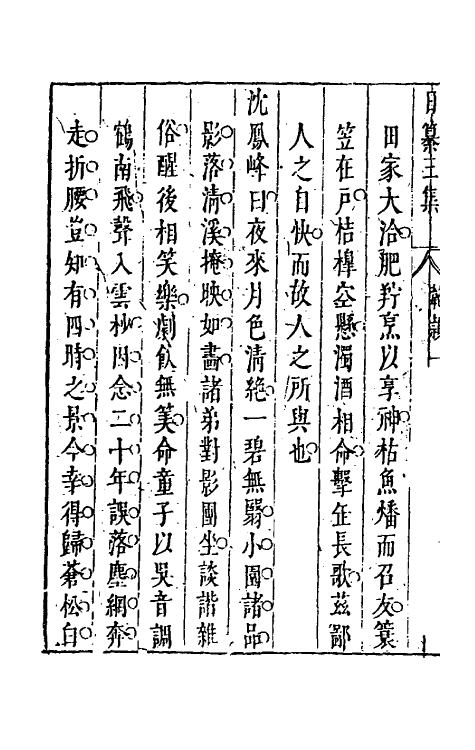 日纂三集
田家大洽肥羜烹以享神枯魚燔而召友簑
笠在戶桔槹空懸濁酒相命擊缶長歌茲鄙
人之自快而故人之所與也
沈鳳峰曰夜來月色清絶一碧無翳小園諸品
影落清溪掩映如畫諸弟對影團坐談諧雜
俗醒後相笑樂劇飲無筭命童子以吳音調
鶴南飛聲入雲杪因念二十年誤落塵網奔
走折腰豈知有四時之景今幸得歸蒼松白